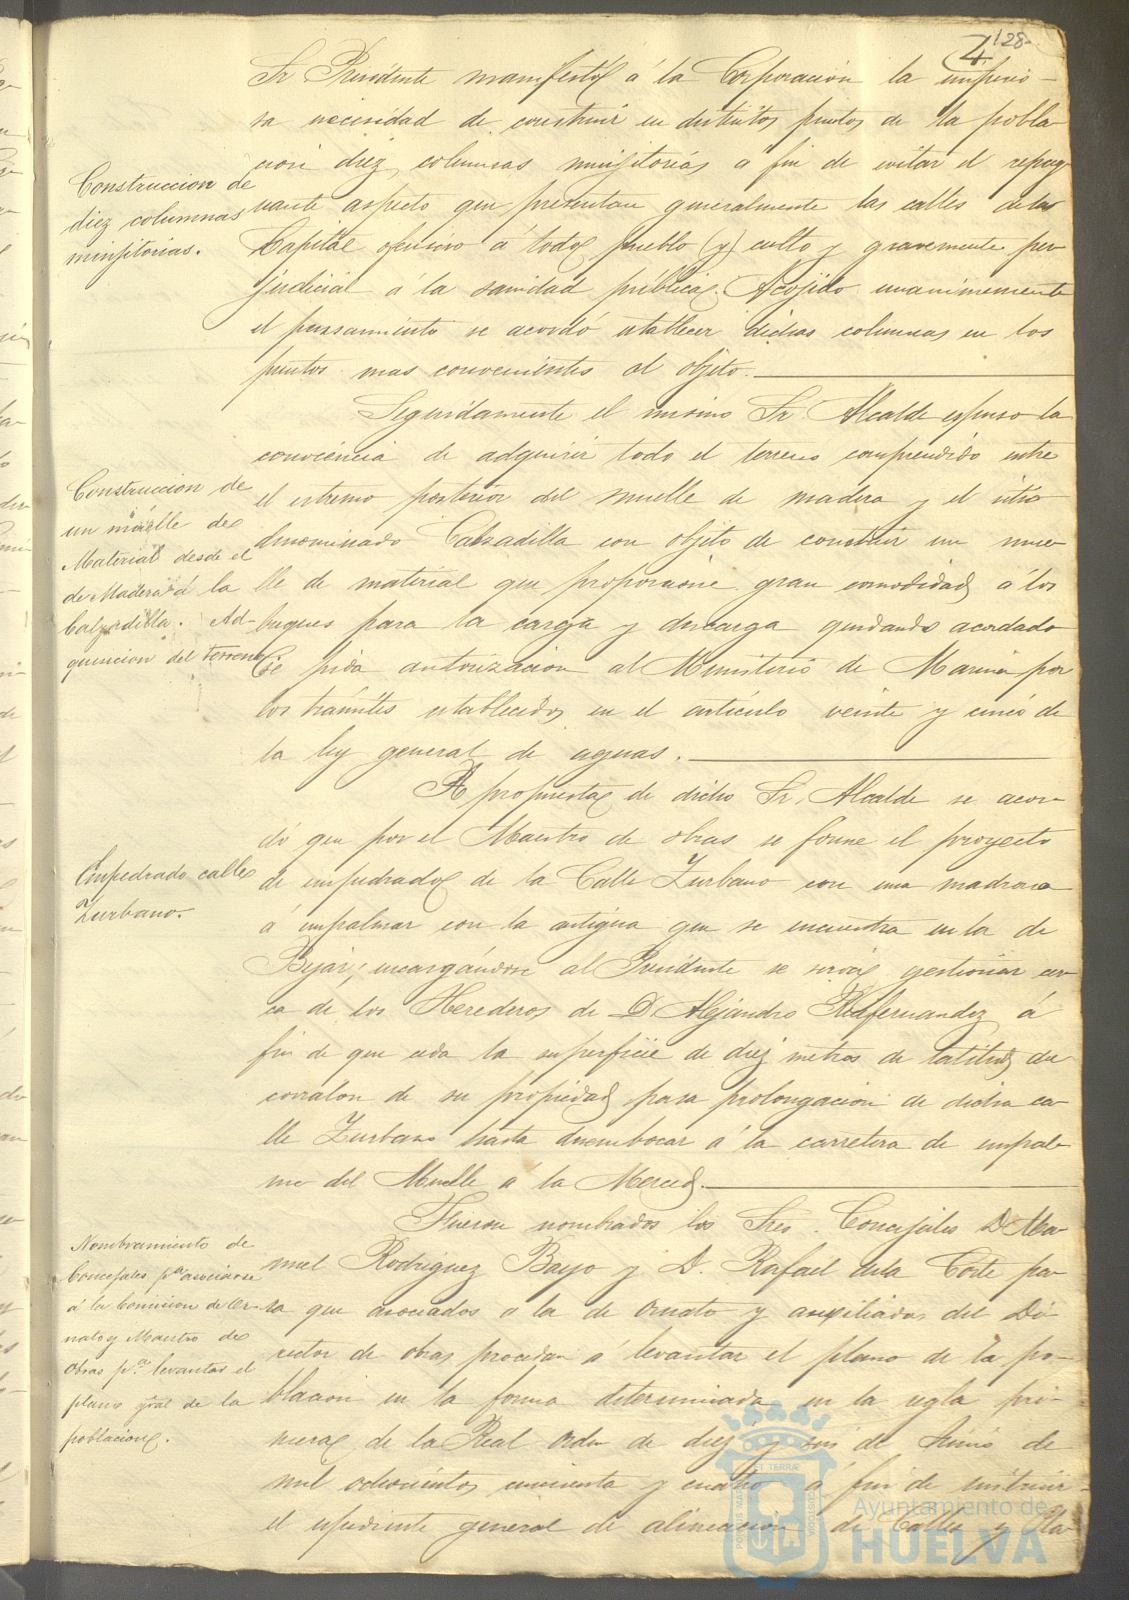 128
4
Sr Presidente manifestó á la Corporación la imperio-
sa necesidad de construir en distintos puntos de la pobla
cion diez columnas minjitorias a fin de evitar el repug
nante aspecto que presentan generalmente las calles de la
Capital ofensivo á todo pueblo (y) culto y gravemente per
judicial á la sanidad pública. Acojido unanimemente
el pensamiento se acordó establecer dichas columnas en los
puntos mas convenientes al objeto.
Construccion de
diez columnas
minjitorias.
Seguidamente el mismo Sr Alcalde espuso la
conviencia de adquirir todo el terreno comprendido entre
el estremo posterior del muelle de madera y el sitio
denominado Calzadilla con objeto de construir un mue
lle de material que proporcione gran comodidad á los
buques para la carga y descarga quedando acordado
Se pida autorizacion al Ministerio de Marina por
los trámites establecidos en el artículo veinte y cinco de
la ley general de aguas.
Construccion de
un muelle de
Material desde el
de Madera á la
Calzadilla. Ad-
quisicion del terreno
A propuesta de dicho Sr Alcalde se acor
dó que por el Maestro de obras se forme el proyecto
de empedrado de la Calle Zurbano con una madrona
á empalmar con la antigua que se encuentra en la de
Bejar; encargándose al Presidente se sirva gestionar cer
ca de los Herederos de D Alejandro Fernandez á
fin de que ceda la superficie de diez metros de latitud de
corralon de su propiedad para prolongacion de dicha ca
lle Zurbano hasta desembocar á la carretera de empal
me del Muelle á la Merced.
Empedrado calle
Zurbano.
Fueron nombrados los Sres. Concejales D Ma
nuel Rodriguez Bayo y D. Rafael de la Corte pa
ra que asociados a la de Ornato y auxiliados del Di
rector de obras procedan á levantar el plano de la po-
blacion en la forma determinada en la regla pri-
mera de la Real orden de diez y seis de Junio de
mil ochocientos cincuenta y cuatro á fin de instruir
el espediente general de alineacion de Calles y Pla
Nombramiento de
Concejales pa asociarse
á la Comision de Or-
nato y Maestro de
Obras pa levantar el
plano gral de la
poblacion.
Ayuntamiento de
HUELVA